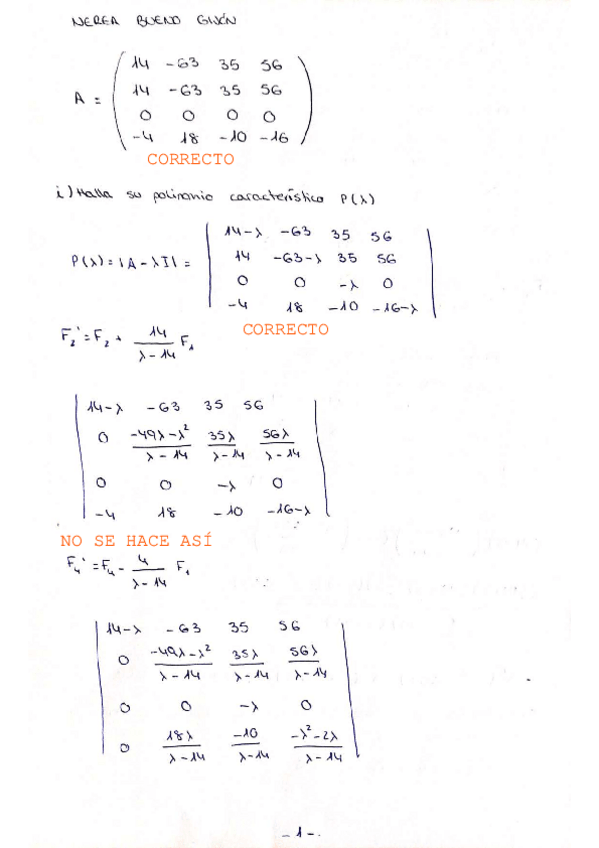 NEREA BUENO GIJÓN
A = ( 14 -63 35 56
14 -63 35 56
0 0 0 0
-4 18 -10 -16 )
CORRECTO
i) Halla su polinomio característico P(λ)
P(λ) = |A - λI| = | 14-λ -63 35 56
14 -63-λ 35 56
0 0 -λ 0
-4 18 -10 -16-λ |
CORRECTO
F₂' = F₂ + 14/(λ-14) F₁
| 14-λ -63 35 56
0 (-49λ-λ²)/(λ-14) 35λ/(λ-14) 56λ/(λ-14)
0 0 -λ 0
-4 18 -10 -16-λ |
NO SE HACE ASÍ
F₄' = F₄ - 4/(λ-14) F₁
| 14-λ -63 35 56
0 (-49λ-λ²)/(λ-14) 35λ/(λ-14) 56λ/(λ-14)
0 0 -λ 0
0 18λ/(λ-14) -10/(λ-14) (-λ²-2λ)/(λ-14) |
-1-.